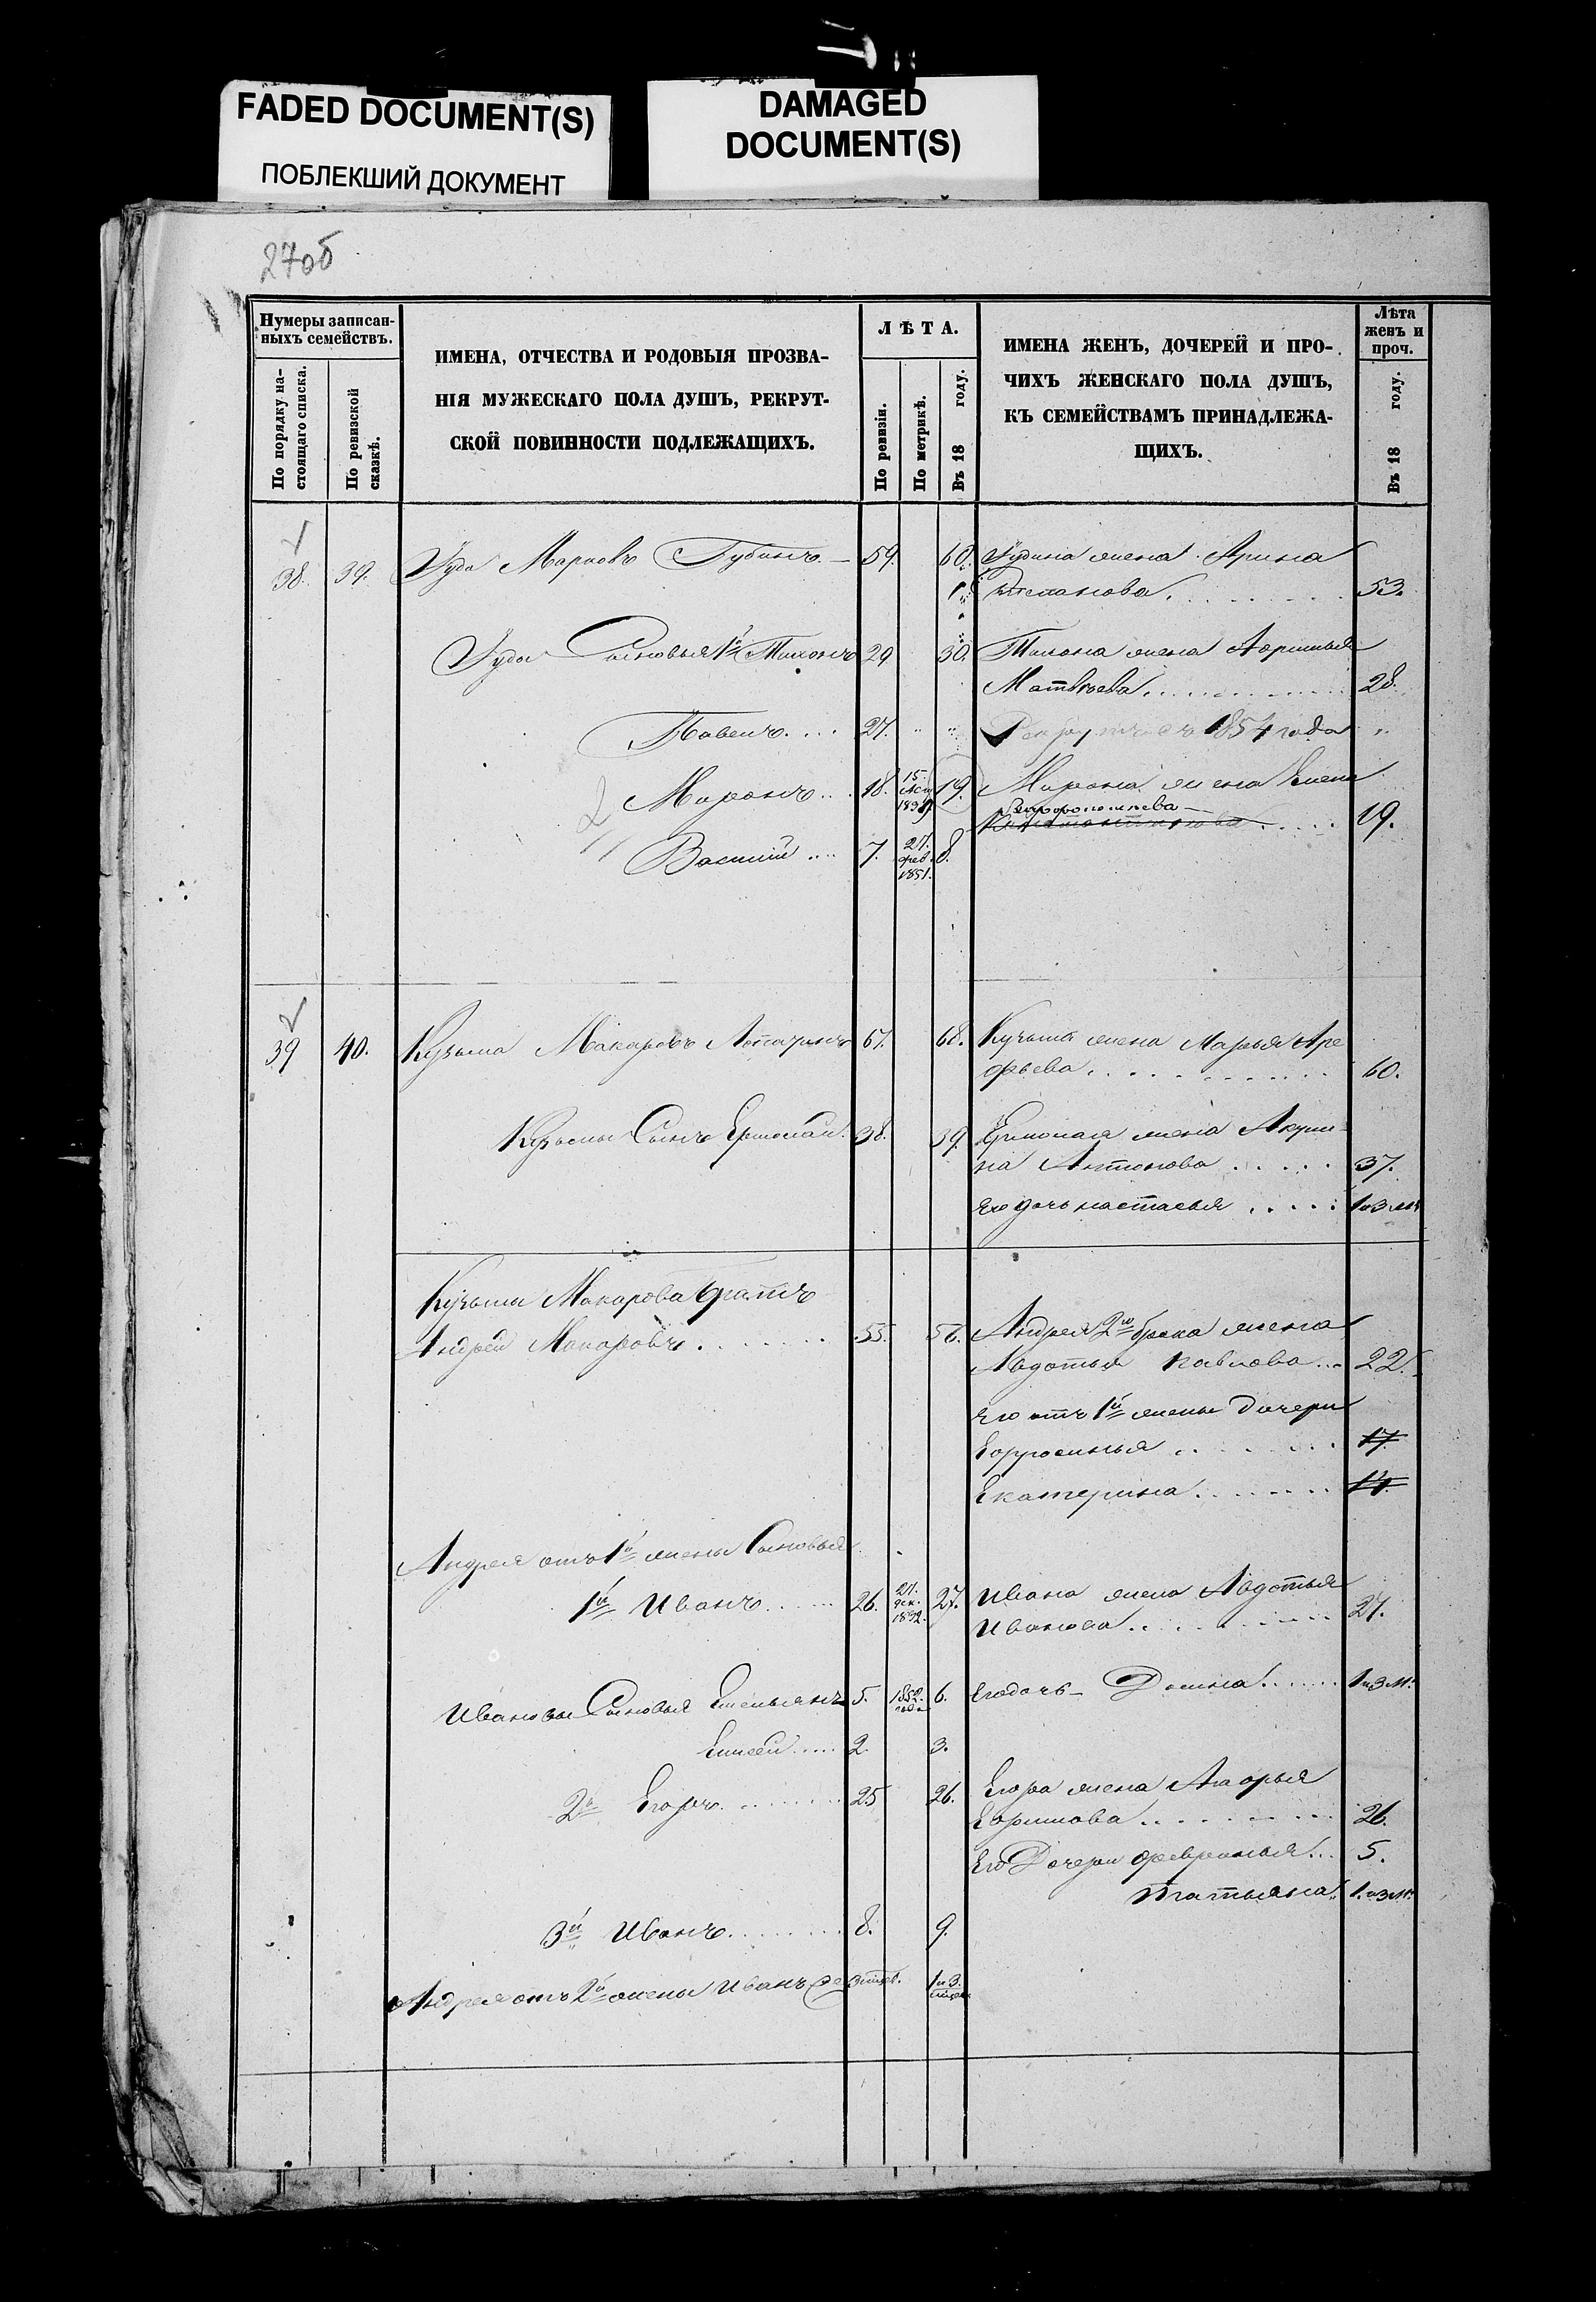 FADED DOCUMENT(S)
ПОБЛЕКШИЙ ДОКУМЕНТ
DAMAGED
DOCUMENT(S)
27об
Нумеры записан-
ныхъ семействъ.
По порядку на-
стоящаго списка.
По ревизской
сказкѣ.
ИМЕНА, ОТЧЕСТВА И РОДОВЫЯ ПРОЗВА-
НІЯ МУЖЕСКАГО ПОЛА ДУШЪ, РЕКРУТ-
СКОЙ ПОВИННОСТИ ПОДЛЕЖАЩИХЪ.
ЛѢТА.
По ревизіи.
По метрикѣ.
Въ 18 году.
ИМЕНА ЖЕНЪ, ДОЧЕРЕЙ И ПРО-
ЧИХЪ ЖЕНСКАГО ПОЛА ДУШЪ,
КЪ СЕМЕЙСТВАМЪ ПРИНАДЛЕЖА-
ЩИХЪ.
Лѣта
женъ и
проч.
Въ 18 году.
38. 39. Іуда Марковъ Губинъ 59. 60. Іудина жена Арина
Степанова 53.
Іуды Сыновья 1й Тихонъ 29 30. Тихона жена Афимья
Матвѣева 28.
Павелъ 27. " " Рекрутъ съ 1854 года "
Миронъ 18. 15. 19. Мирона жена Елена
19.
Василій 7. 27. фев. 1851. 8.
39 40. Кузьма Макаровъ Лопатинъ 67. 68. Кузьмы жена Марья Аре
фьева 60.
Кузьмы Сынъ Ермолай 38. 39. Ермолая жена Акули
на Антонова 37.
Его дочь настасья 1 и 3 м.
Кузьмы Макарова братъ
Андрей Макаровъ 55. 56. Андрея 2го брака жена
Авдотья павлова 22.
Его отъ 1й жены дочери
Ефросинья 17.
Екатерина 14.
Андрея отъ 1й жены Сыновья
1й Иванъ 26. 27. дек. 1832. 27. Ивана жена Авдотья
Иванова 27.
Ивановы Сыновья Емельянъ 5. 1852. года 6. Его дочь Домна 1 и 3 м.
Елисей 2. 3.
2й Егоръ 25 26. Егора жена
Ефимова 26.
Его Дочери февронья 5.
татьяна 1 и 3 м.
3й Иванъ 8. 9.
Андрея отъ 2й жены Иванъ 3 мѣс. 1 и 3. мѣс.